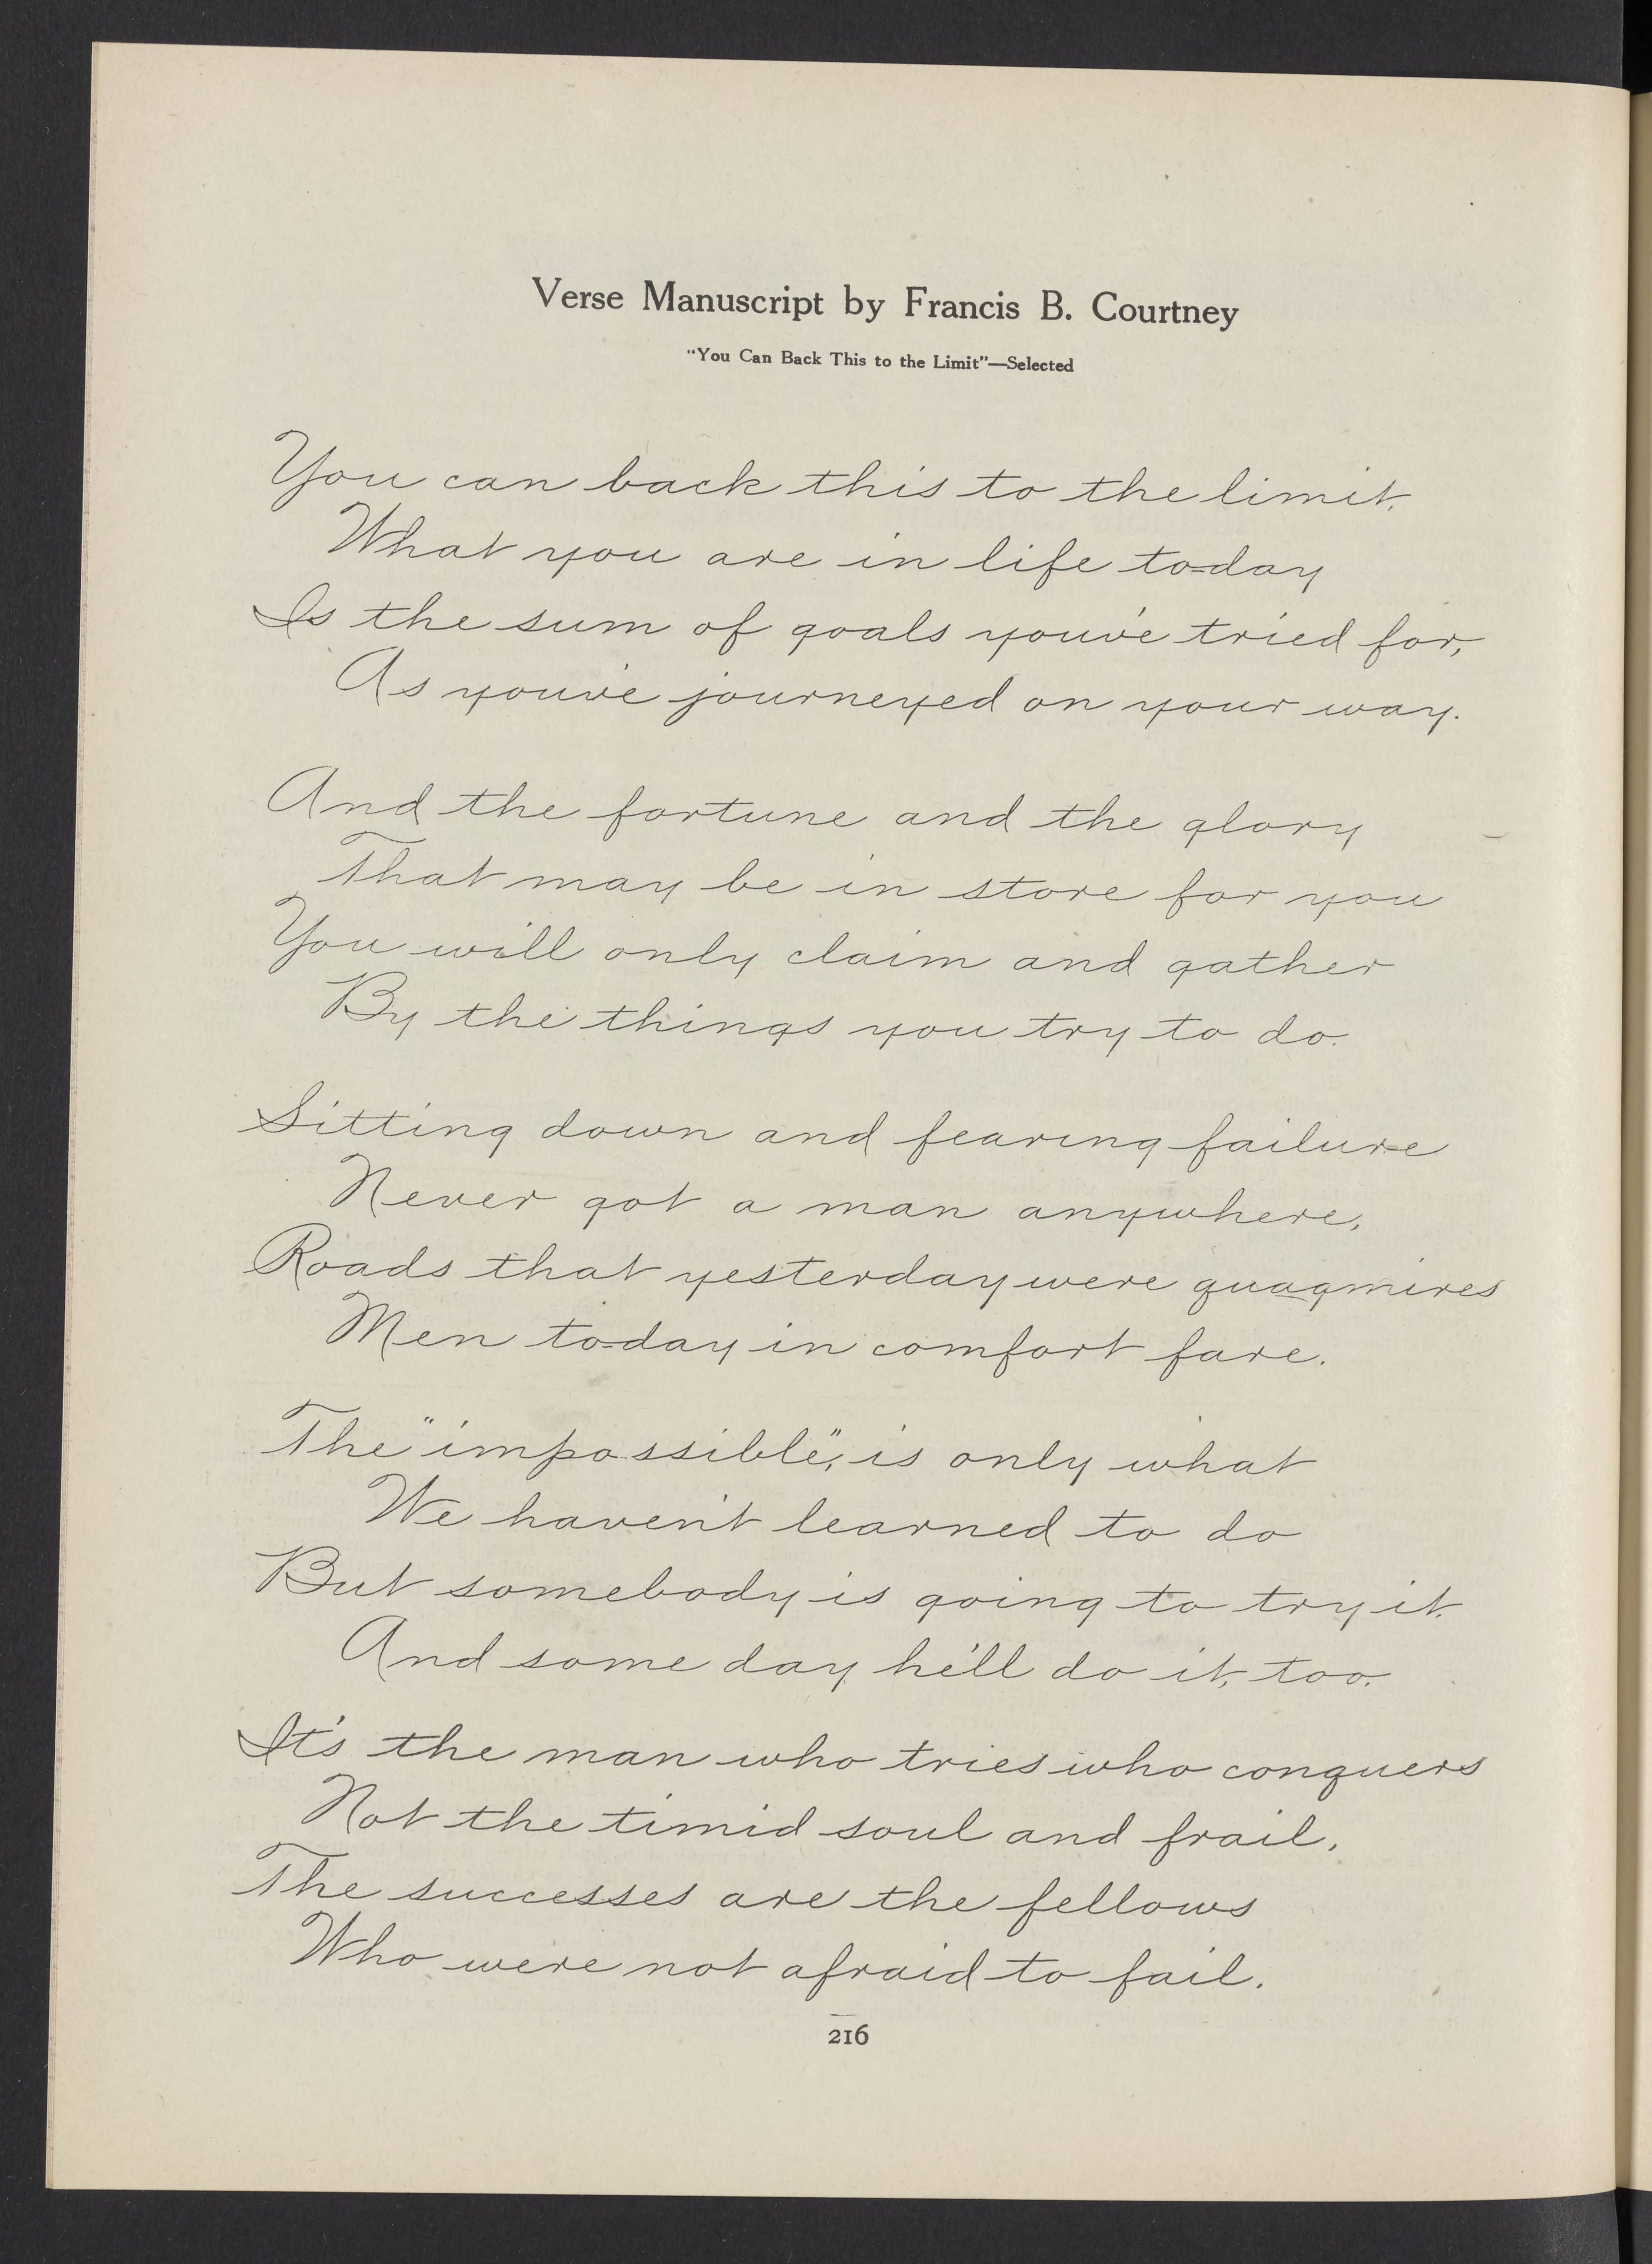 Verse Manuscript by Francis B. Courtney
"You Can Back This to the Limit"—Selected
You can back this to the limit,
What you are in life to=day
Is the sum of goals you've tried for,
As you've journeyed on your way.
And the fortune and the glory
That may be in store for you
You will only claim and gather
By the things you try to do.
Sitting down and fearing failure
Never got a man anywhere,
Roads that yesterday were quagmires
Men to=day in comfort fare.
The "impossible", is only what
We haven't learned to do
But somebody is going to try it,
And some day he'll do it, too.
It's the man who tries who conquers
Not the timid soul and frail,
The successes are the fellows
Who were not afraid to fail.
216